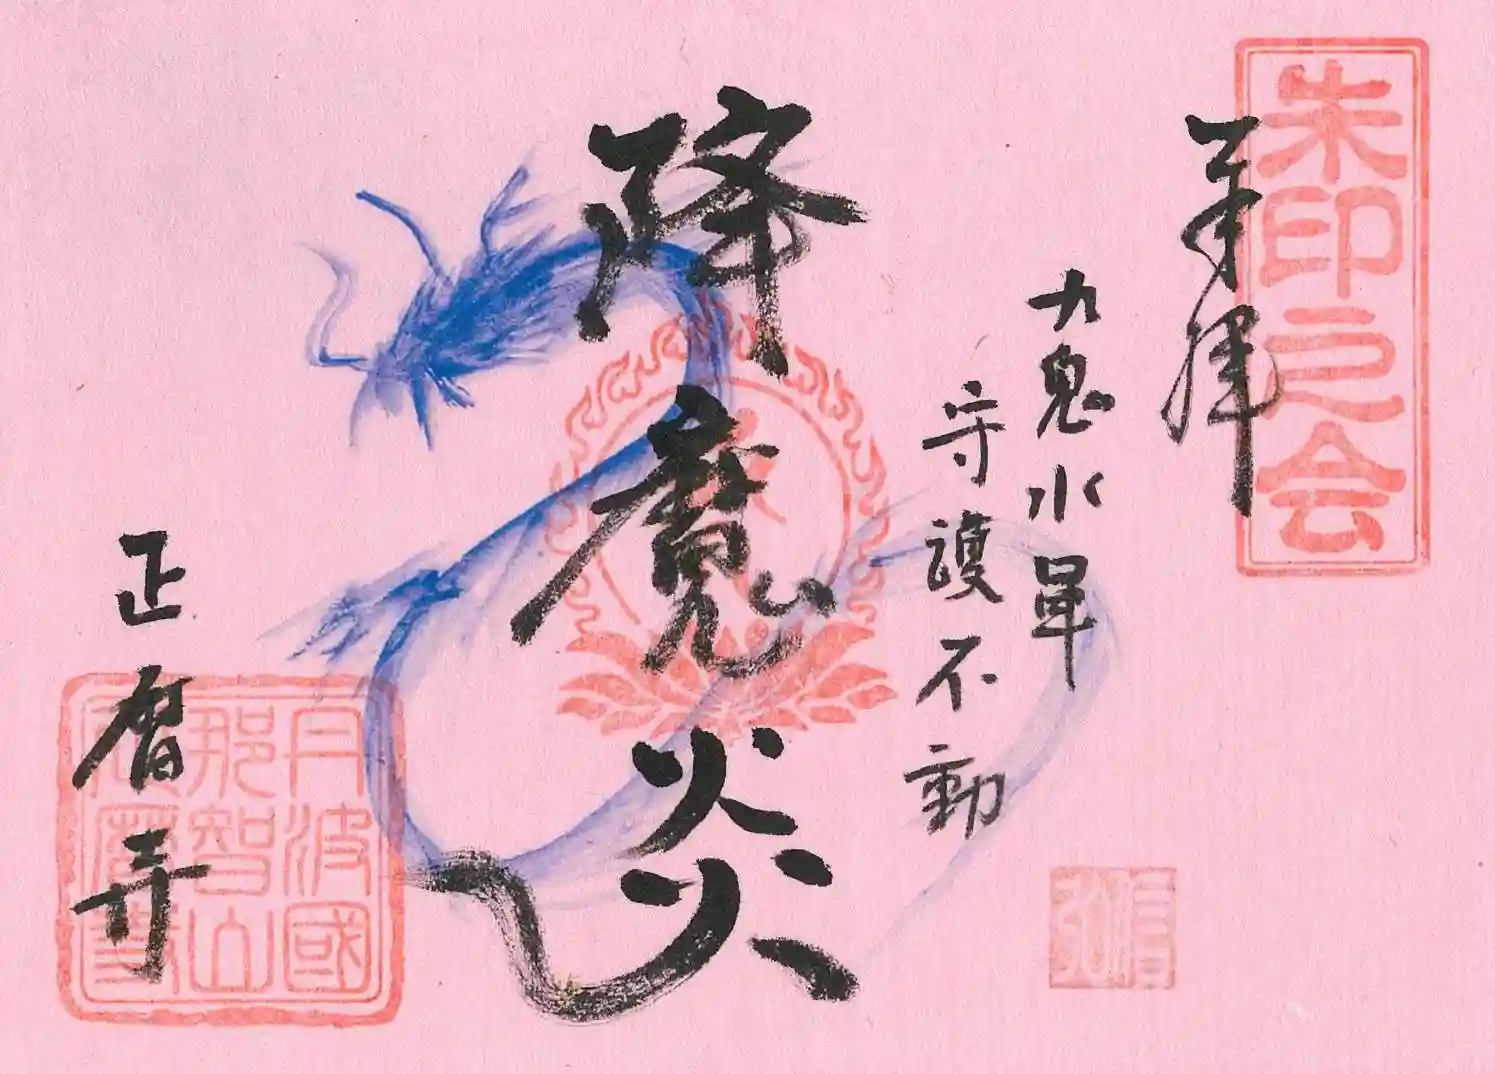 朱印之会
奉拝
九鬼水軍
守護不動
降魔炎
正暦寺
丹波國
那智山
正暦寺